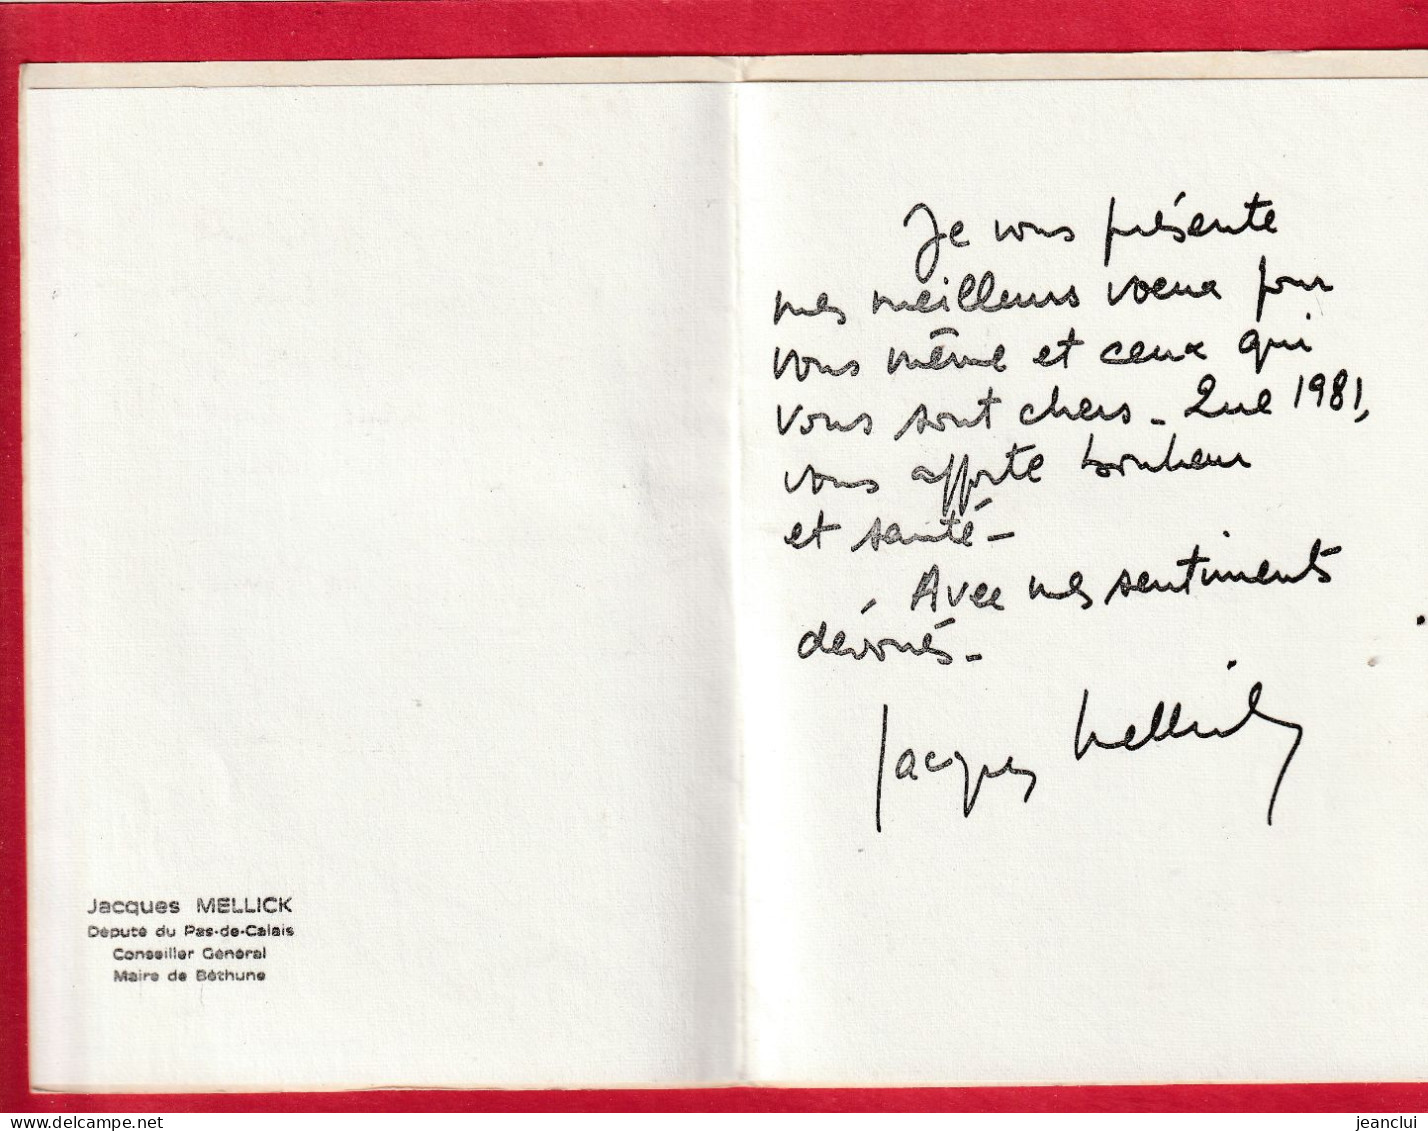 Jacques MELLICK
Député du Pas-de-Calais
Conseiller Général
Maire de Béthune
Je vous présente
mes meilleurs voeux pour
vous même et ceux qui
vous sont chers - Que 1981,
vous apporte bonheur
et santé -
Avec mes sentiments
dévoués -
Jacques Mellick
delcampe.net
jeanclui